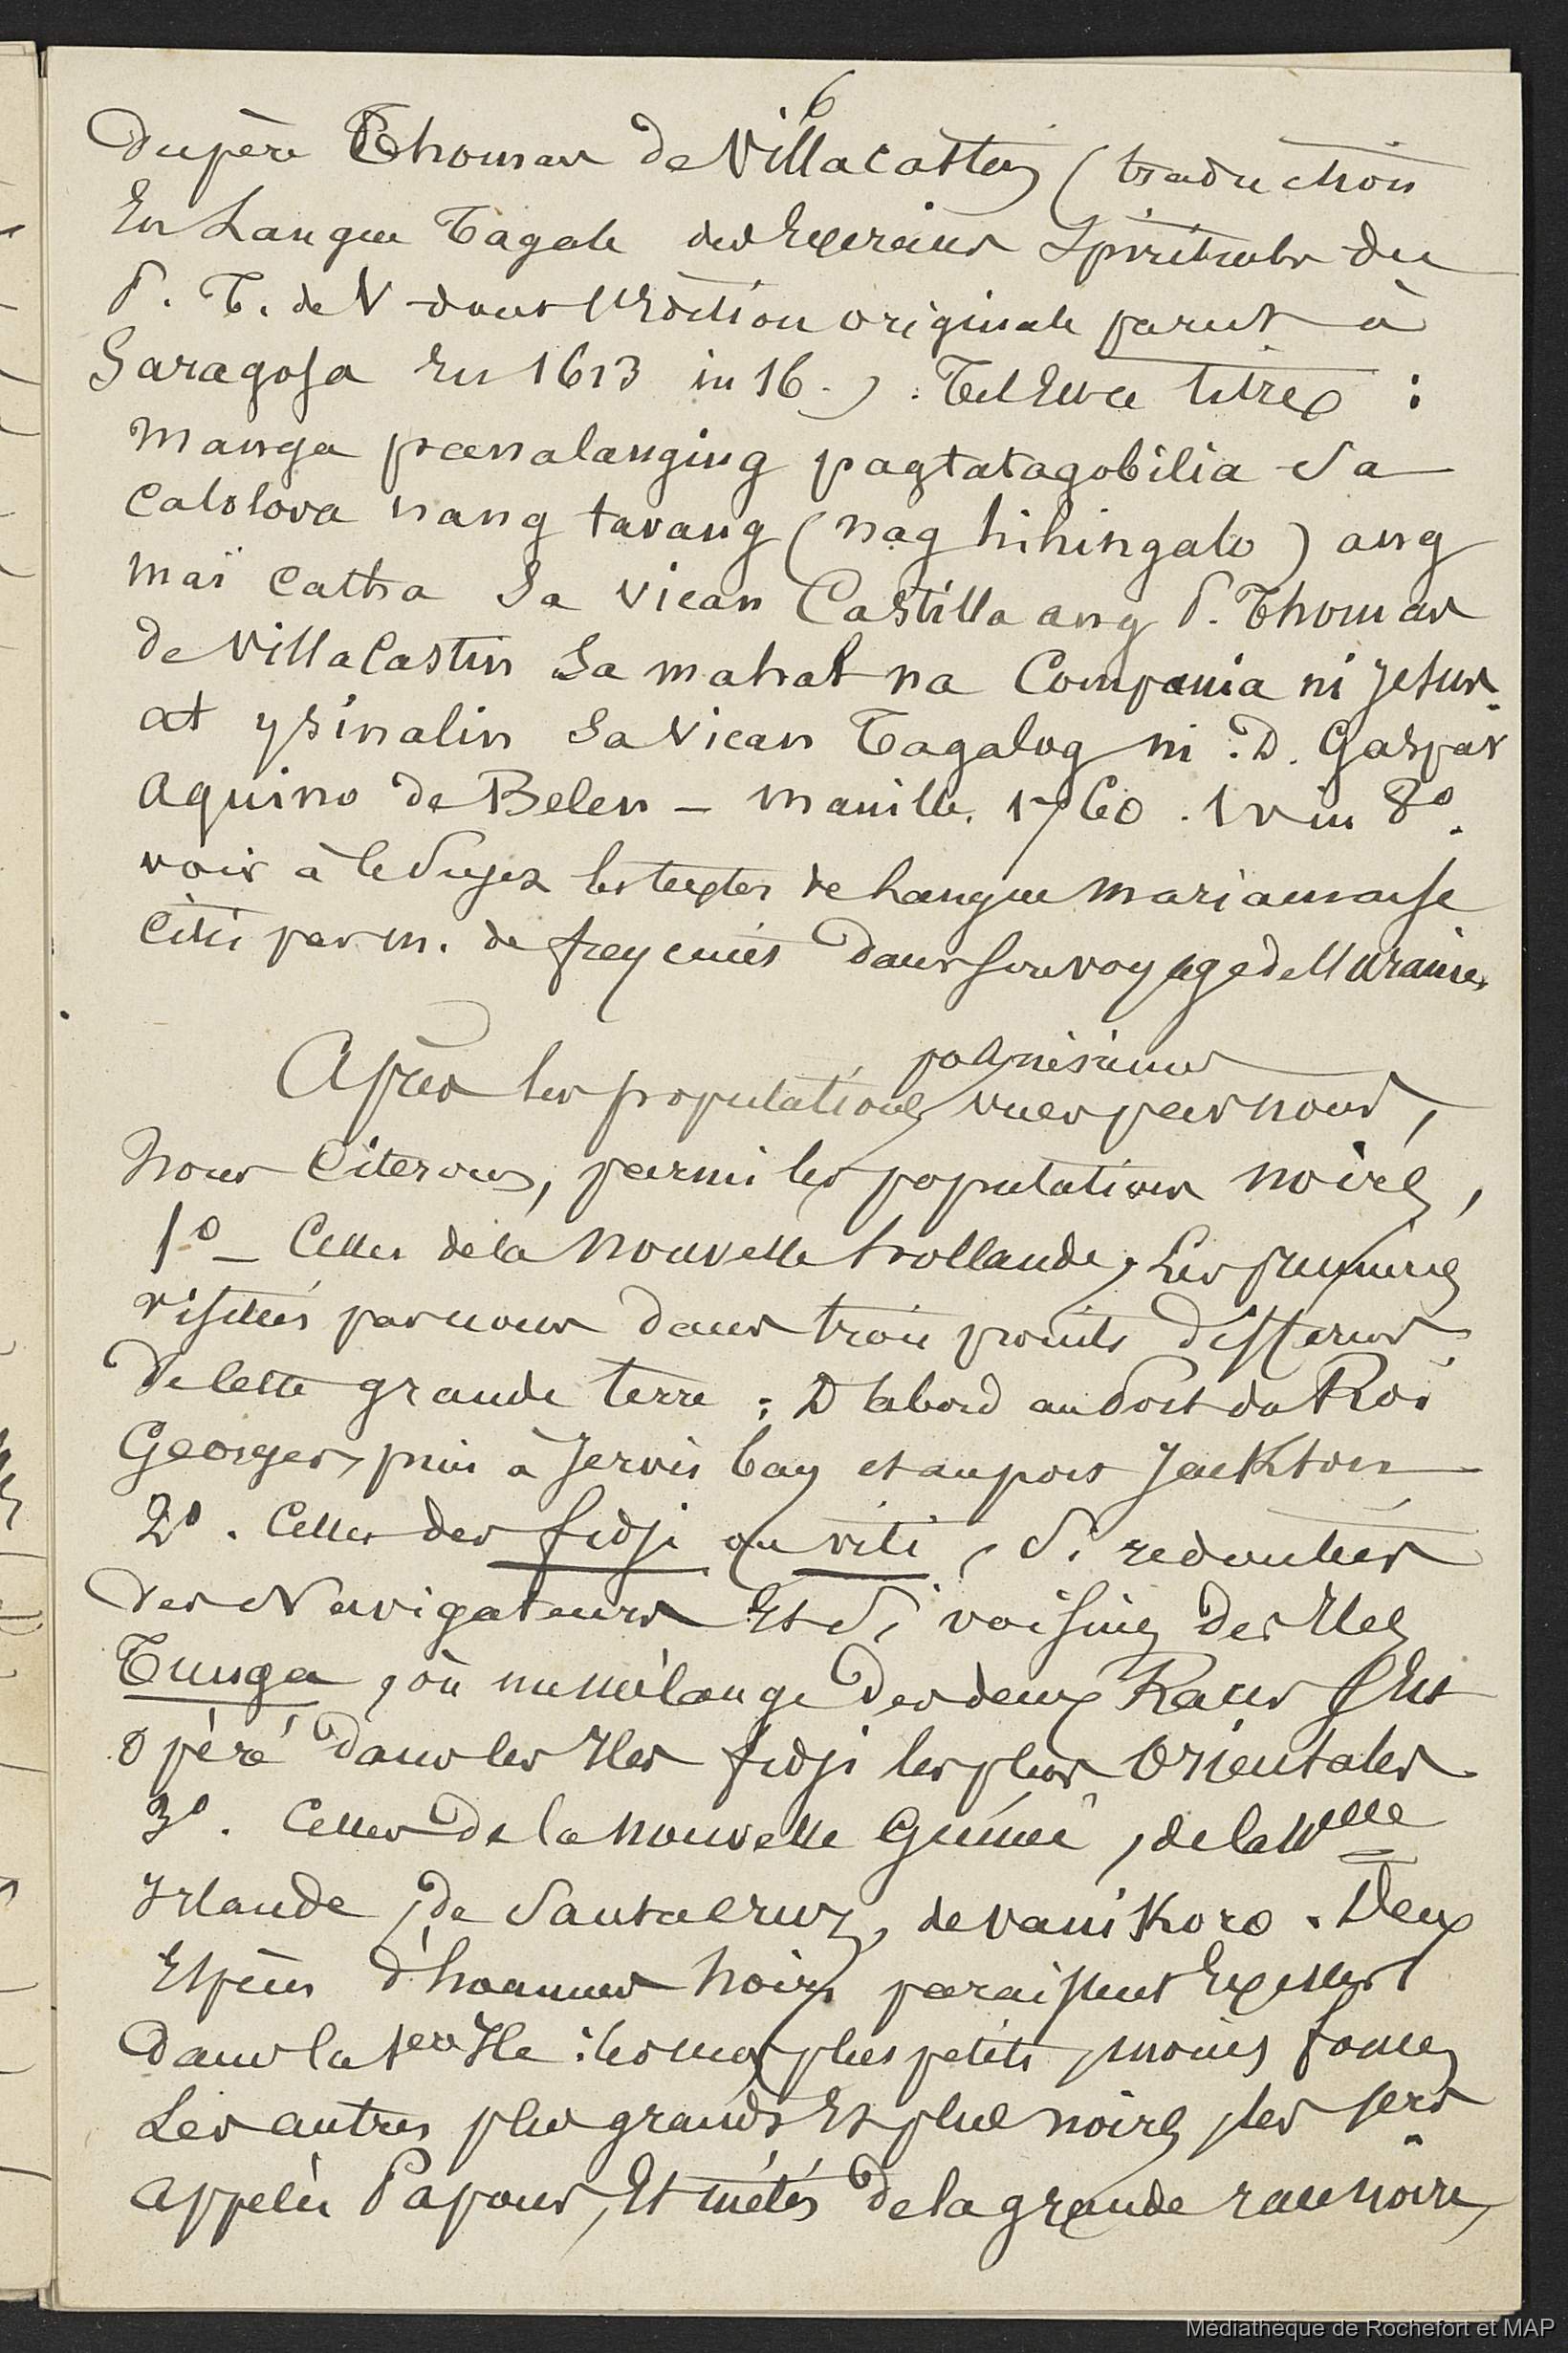 6
du père Thomas de Villacastin (traduction
En Langue Tagale des Exercices Spirituels du
P. T. de V dont l'Edition originale parut à
Saragosa En 1613 in 16.). Tel En ce titre :
manga panalanging pagtatagobilia sa
calolova nang tavang (nag hihingalo) ang
maï catha sa vican Castilla ang P. Thomas
de Villacastin sa mahal na Compania ni Jesus.
at ysinalin sa vican Tagalog ni D. Gaspar
Aquino de Belen – manille. 1760. 1 v in 8º.
voir à ce sujet les textes de langue mariannaise
cités par m. de freycinet dans son voyage de l'uranie.
polynésiennes
Après les populations vues par nous,
nous citerons, parmi les populations noires,
1º – Celles de la nouvelle hollande, Les
visitées par nous dans trois points différens
de cette grande terre ; D'abord au Port du Roi
Georges, puis à Jervis bay et au port Jackson
2º. Celles des fidji ou viti, si redoutées
des Navigateurs Et si voisines des Iles
Tunga, où un mélange des deux Races s'Est
opéré dans les Iles fidji les plus Orientales
3º. Celles de la nouvelle Guinée, de la Nlle
Irlande, de Santa cruz, de vanikoro. Deux
Espèces d'hommes noirs paraissent Exister
dans la 1ere Ile : les uns plus petits, moins foncés
Les autres plus grands Et plus noirs, les 1ers
appelés Papous, Et métis de la grande race noire,
Médiathèque de Rochefort et MAP